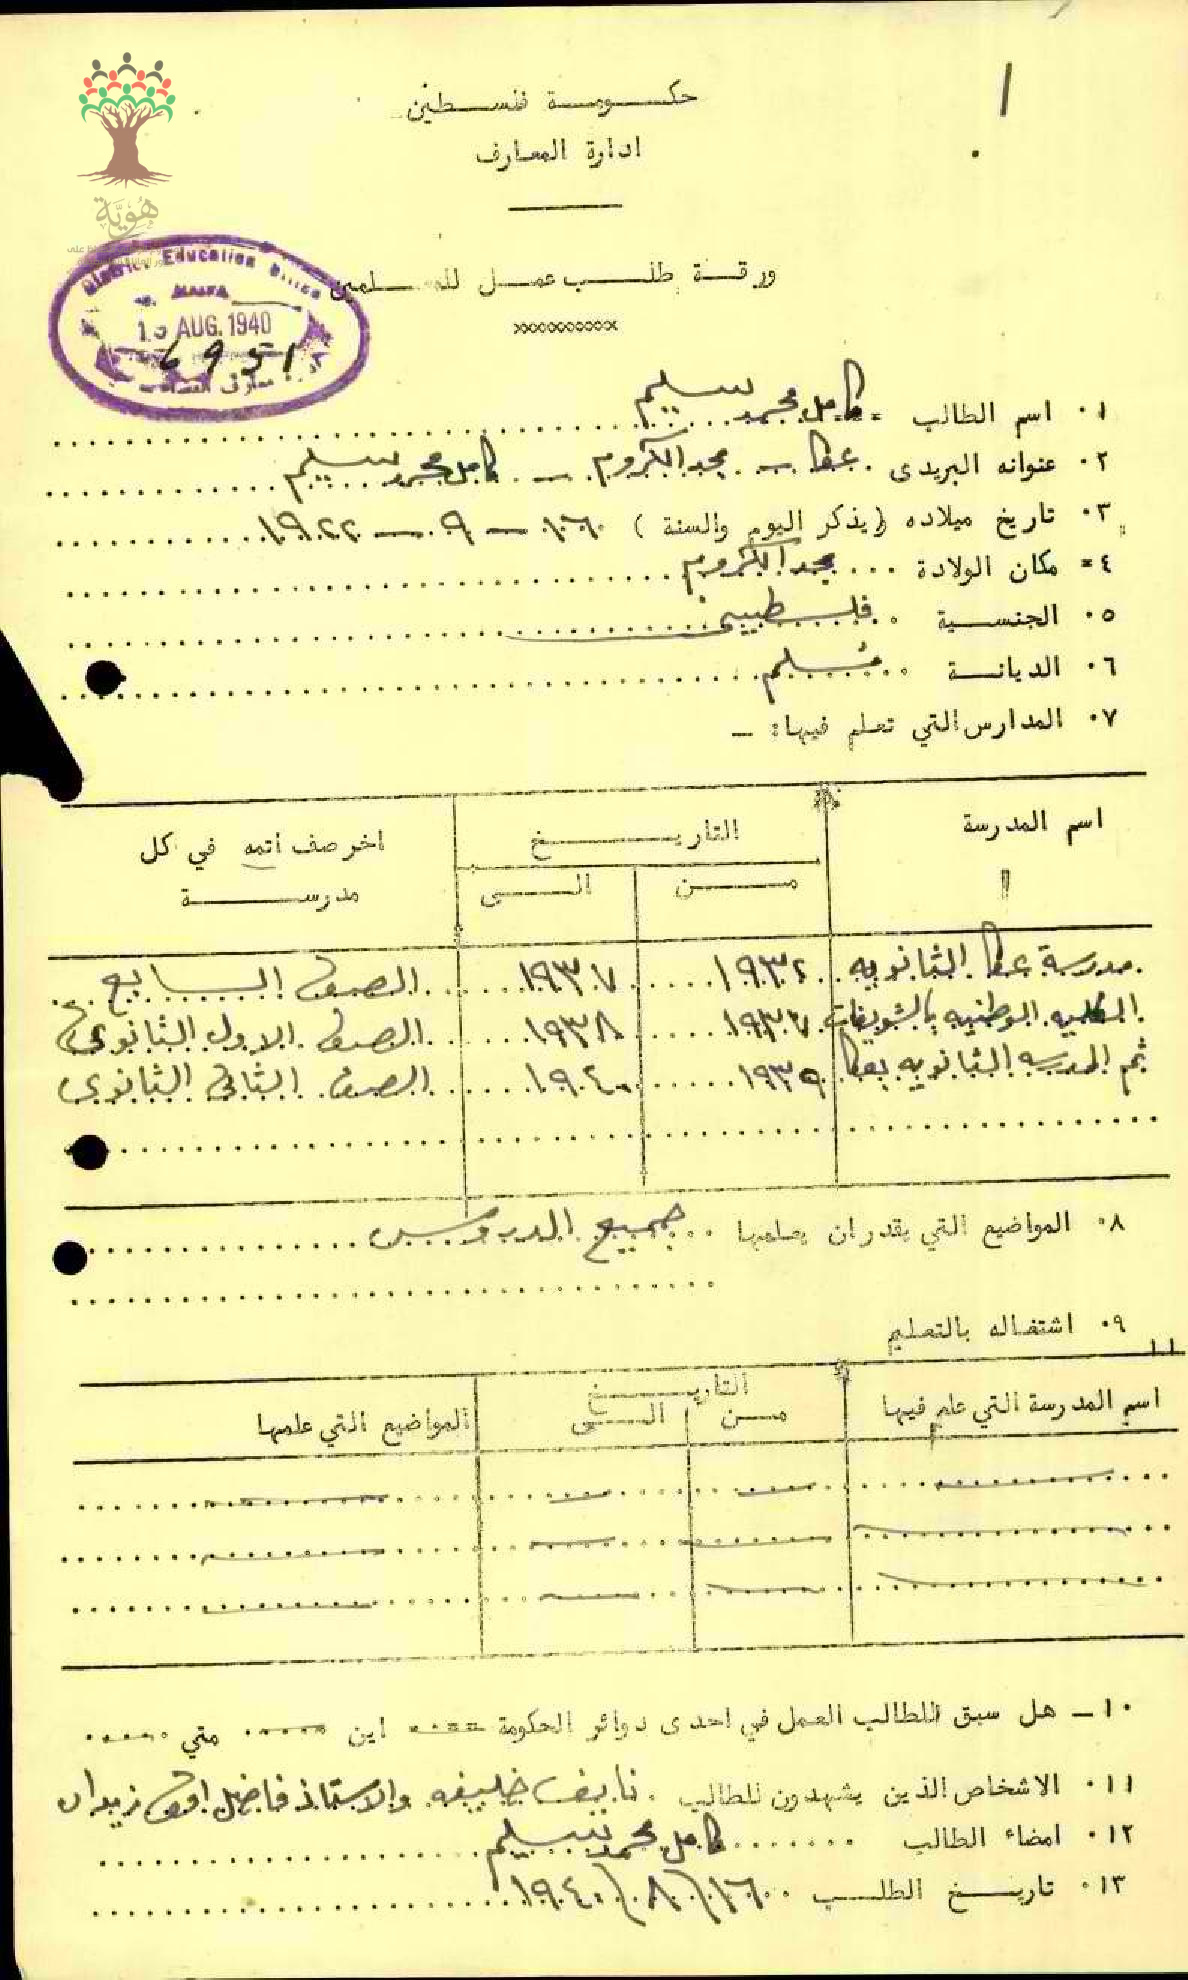 ١
حكومة فلسطين
ادارة المعارف
هُوِيَّة
ورقة طلب عمل للمعلمين
xxxxxxxxxxx
District Education Office
HAIFA
15 AUG. 1940
6951
١٠ اسم الطالب كامل محمد سليم
٢٠ عنوانه البريدى عكا - مجد الكروم - كامل محمد سليم
٣٠ تاريخ ميلاده (يذكر اليوم والسنة) ١٦ - ٩ - ١٩٢٢
٤= مكان الولادة مجد الكروم
٥٠ الجنسية فلسطيني
٦٠ الديانة مسلم
٧٠ المدارس التي تعلم فيها: -
اسم المدرسة التاريخ اخر صف اتمه في كل مدرسة
من الى
مدرسة عكا الثانويه ١٩٣٢ ١٩٣٧ الصف السابع
الكليه الوطنيه بالشويفات ١٩٣٧ ١٩٣٨ الصف الاول الثانوي
ثم المدرسه الثانويه بعكا ١٩٣٩ ١٩٤٠ الصف الثاني الثانوي
٨٠ المواضيع التي يقدر ان يعلمها جميع الدروس
٩٠ اشتغاله بالتعليم
اسم المدرسة التي علم فيها التاريخ المواضيع التي علمها
من الى
١٠- هل سبق للطالب العمل في احدى دوائر الحكومة اين متي
١١٠ الاشخاص الذين يشهدون للطالب نايف خليفه والاستاذ فاضل زيدان
١٢٠ امضاء الطالب كامل محمد سليم
١٣٠ تاريخ الطلب ١٦/٨/١٩٤٠